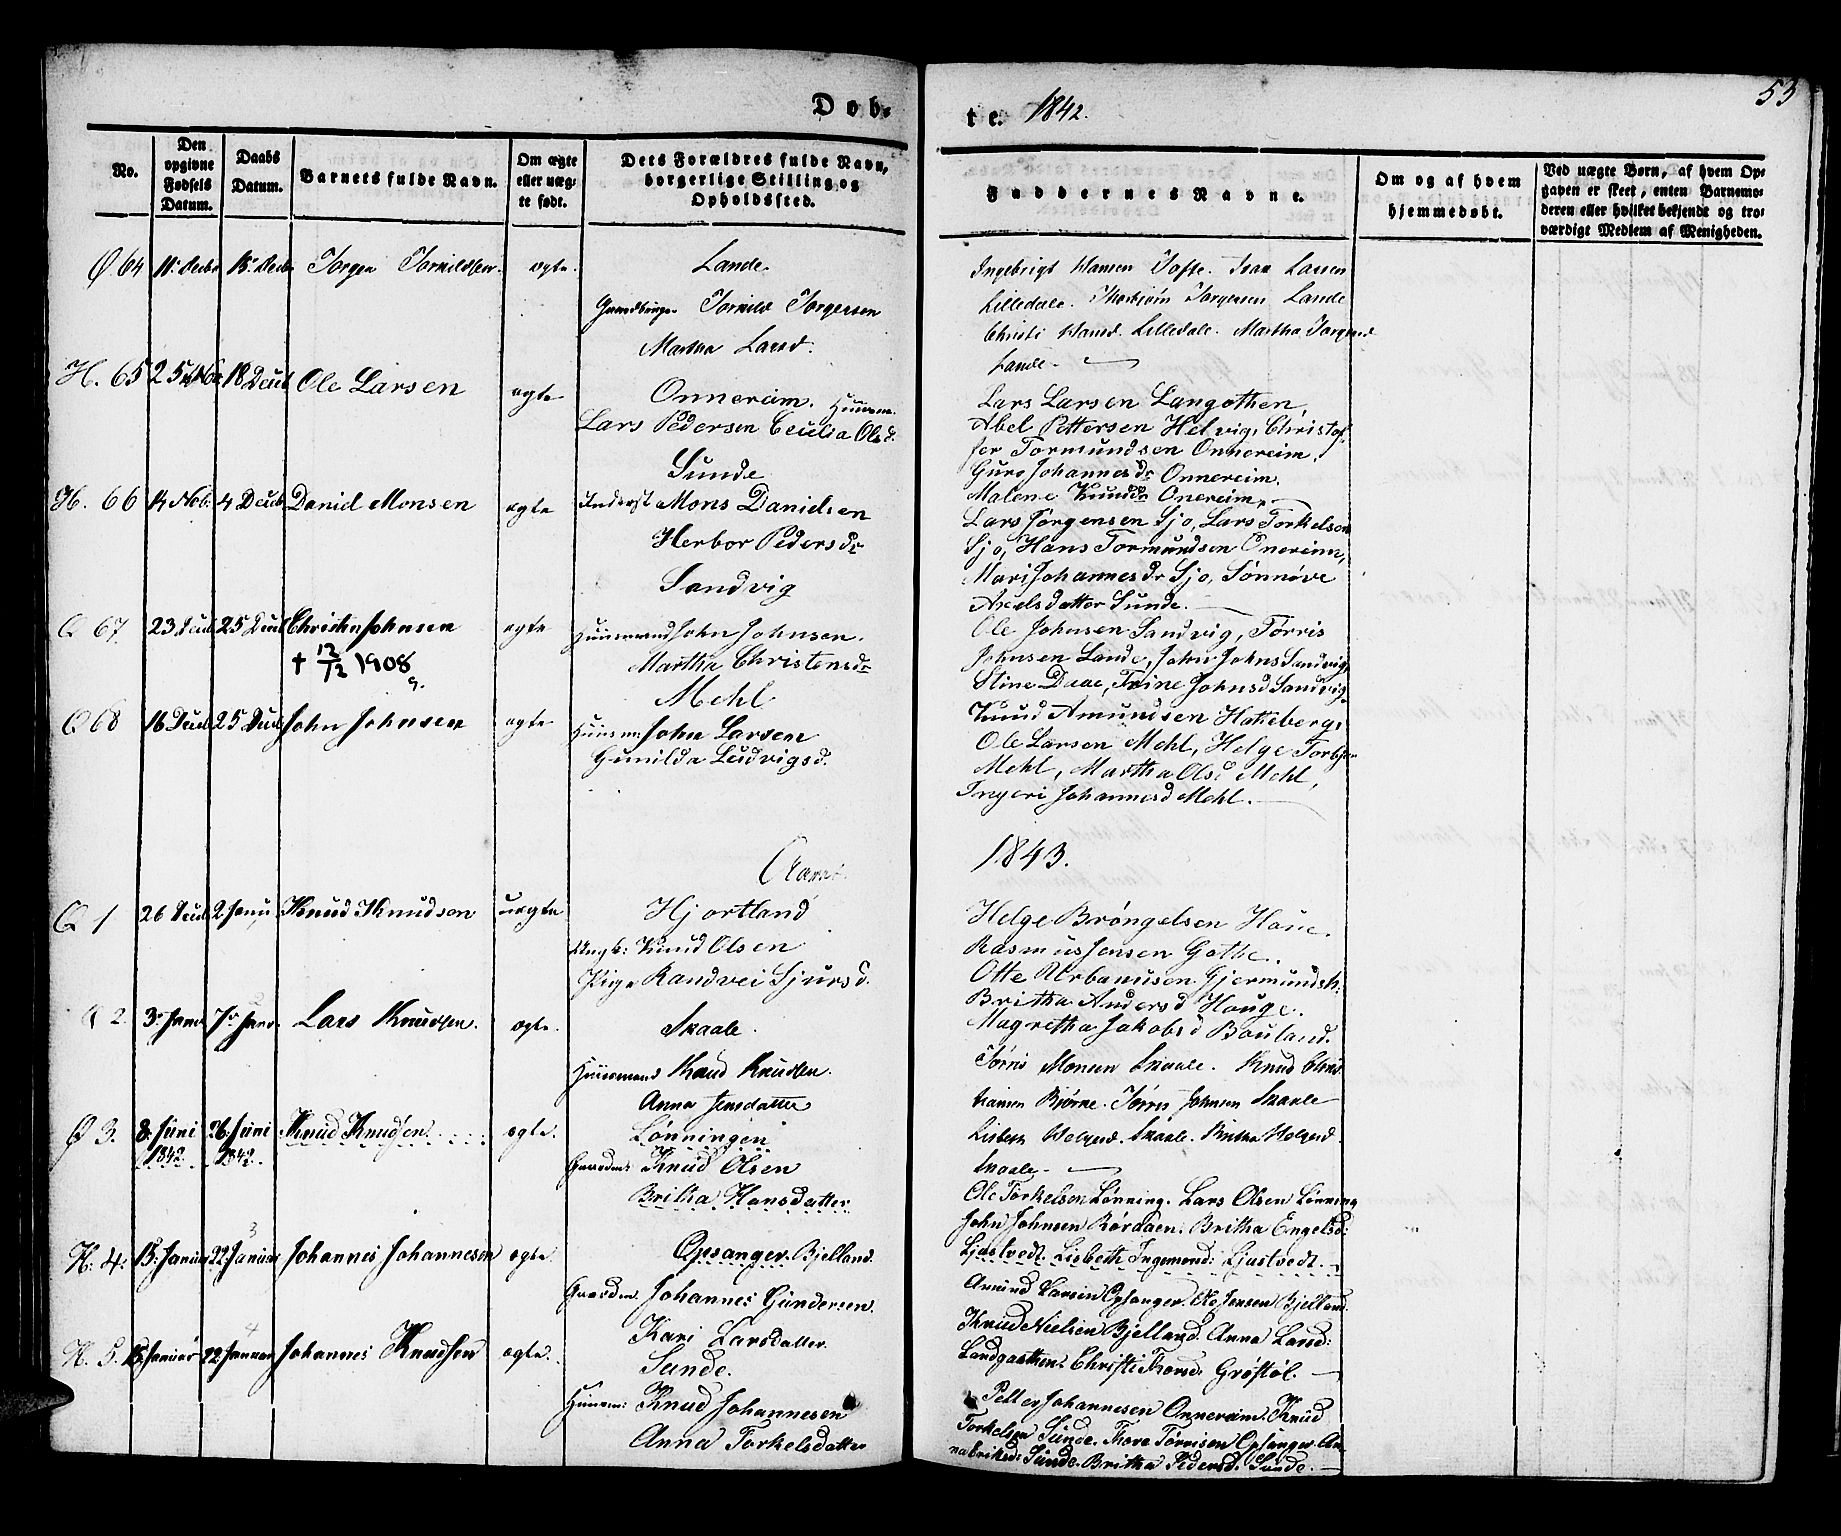 Dob-
te. 1842.
53
No.
Den opgivne Fødsels Datum.
Daabs Datum.
Barnets fulde Navn.
Om ægte eller uægte født.
Dets Forældres fulde Navn, borgerlige Stilling og Opholdssted.
Faddernes Navne.
Om og af hvem hjemmedøbt.
Ved uægte Børn, af hvem Opgaven er skeet, enten Barnemoderen eller hvilket bekjendt og troværdigt Medlem af Menigheden.
Ø 64 11. Decbr 18. Decbr Torger Torkildsen. ægte. Lande.
Torkild Torgersen
Martha Larsd.
Ingebrigt Hansen Tofte. Ivar Larsen
Lilledale. Thorbjörn Torgersen Lande
Christi Hansd. Lilledale. Martha Torgersd.
Lande.
H. 65 25 Nov 18 Decb Ole Larsen ægte Onnereim. Huusm.
Lars Pedersen Cecilia Olsd.
Lars Larsen Langothen,
Abel Pettersen Helvig, Christof-
fer Tormundsen Onnereim,
Guro Johannesdr Onnereim.
Malene Knudsdr Onereim,
H. 66 14 Nob. 4 Decb Daniel Monsen ægte Sunde
Inderst Mons Danielsen
Herbor Pedersdr
Lars Jørgensen Sjo, Lars Torkelsen
Sjo, Hans Tormundsen Onereim,
Mari Johannesdr Sjo, Sønnøve
Axelsdatter Sunde.
Q 67 23 Decb 25 Decb Christen Johnsen ægte Sandvig
† 12/12 1908
Huusmand John Johnsen.
Martha Christensdr
Ole Johnsen Sandvig, Tørris
Johnsen Lande, John Johns Sandvig,
Stine Daae, Trine Johnsd Sandvig
Q 68 16 Decb 25 Decb John Johnsen ægte Mehl
Huusm John Larsen
Gunilda Ludvigsd.
Knud Amundsen Hatteberg,
Ole Larsen Mehl, Helge Torbjø
Mehl, Martha Olsd Mehl,
Ingeri Johannesd Mehl.
Aaret 1843.
Q 1 26 Decb 2 Janu Knud Knudsen uægte Hjortland
Ungk: Knud Olsen
Pige Randvei Sjursd.
Helge Brøngelsen Houe.
Rasmus Jensen Gothe.
Otte Urbanusen Gjermundsh:
Britha Andersd Houge.
Magretha Jakobsd Bouland.
Q 2 3. Janr 7. Janr. Lars Knudsen. ægte. Skaale.
Huusmand Knud Knudsen.
Anna Jensdatter
Tørris Monsen Skaale. Knud Chris
tiansen Bjørne. Tørris Johnsen Skaale
Lisbeth Helgesd. Skaale. Britha Helgesd.
Skaale.
Ø 3. 8. Juni 1842. 26. Juni 1842. Knud Knudsen. ægte. Lønningen
Gaardm: Knud Olsen
Britha Hansdatter
Ole Torkelsen Lønning. Lars Olsen Lønning
John Johnsen Rørdaen. Britha Engelsd:
Ljustvedt. Lisbeth Ingemund: Ljustvedt.
H. 4. 15. Januar 22. Januar Johannes Johannesen ægte. Opsanger. Bjelland.
Gaardm. Johannes Gundersen.
Kari Larsdatter.
Amund Larsen Opsanger. Jensen Bjelland.
Knud Nielsen Bjelland. Anna Larsd:
Landgarthen. Christi Thorsd: Grøstøl.
H. 5. 18. Januar 22. Januar Johannes Knudsen ægte. Sunde.
Huusm: Knud Johannesen
Anna Torkelsdatter
Petter Johannesen Onnereim. Knud
Torkelsen Sunde. Thore Tørrisen Opsanger. An-
na Eriksd: Sunde. Britha Pedersd: Sunde.